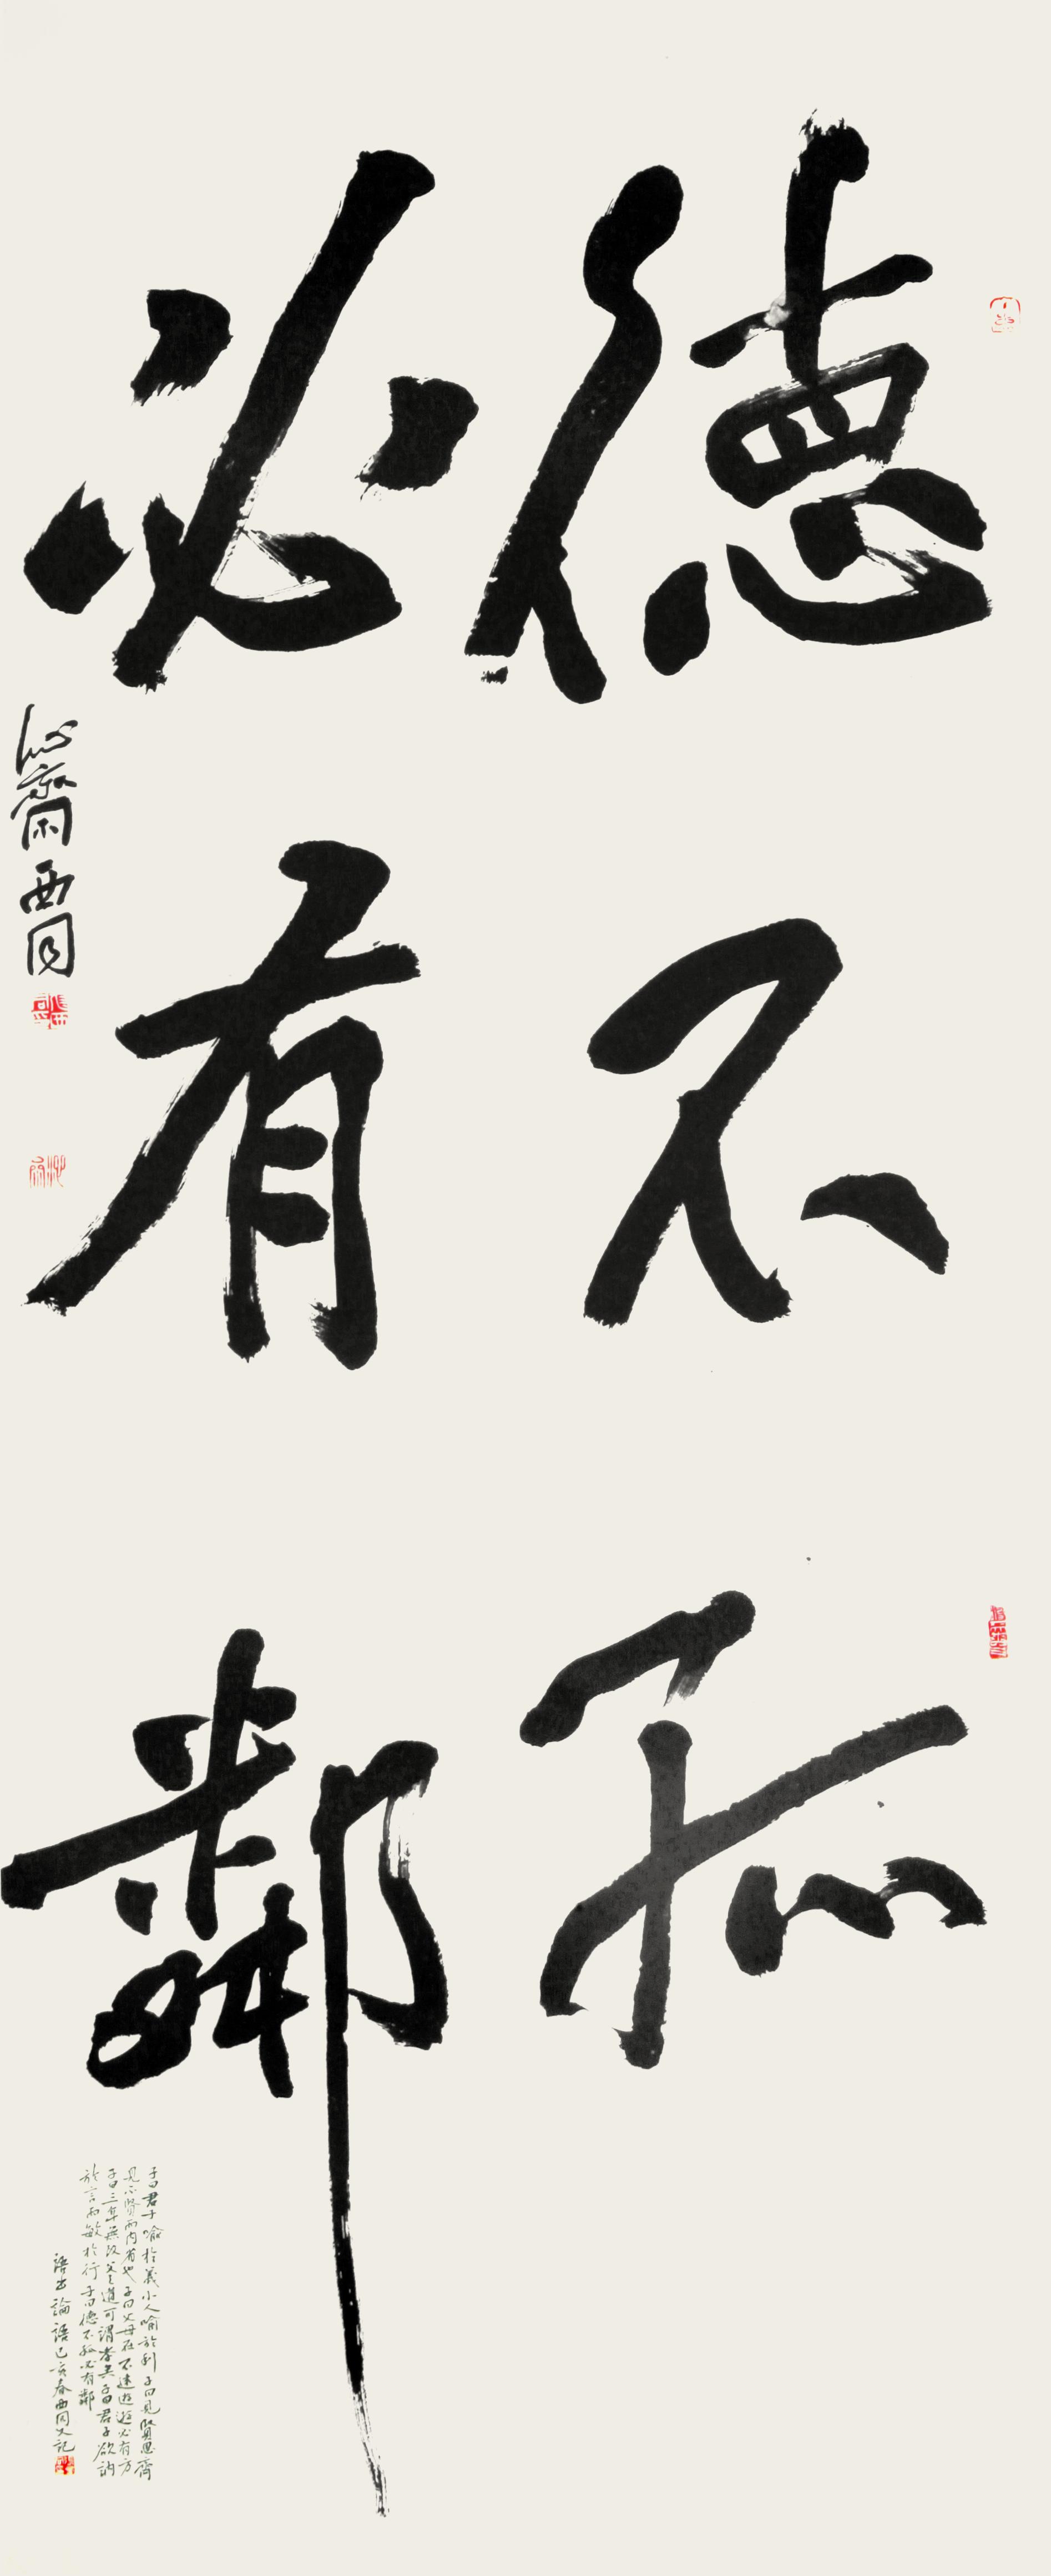 德不孤
必有鄰
沁齋酉同
子曰君子喻於義小人喻於利子曰見賢思齊
見不賢而內省也子曰父母在不遠遊遊必有方
子曰三年無改父之道可謂孝矣子曰君子欲訥
於言而敏於行子曰德不孤必有鄰
語出論語己亥春酉同又記